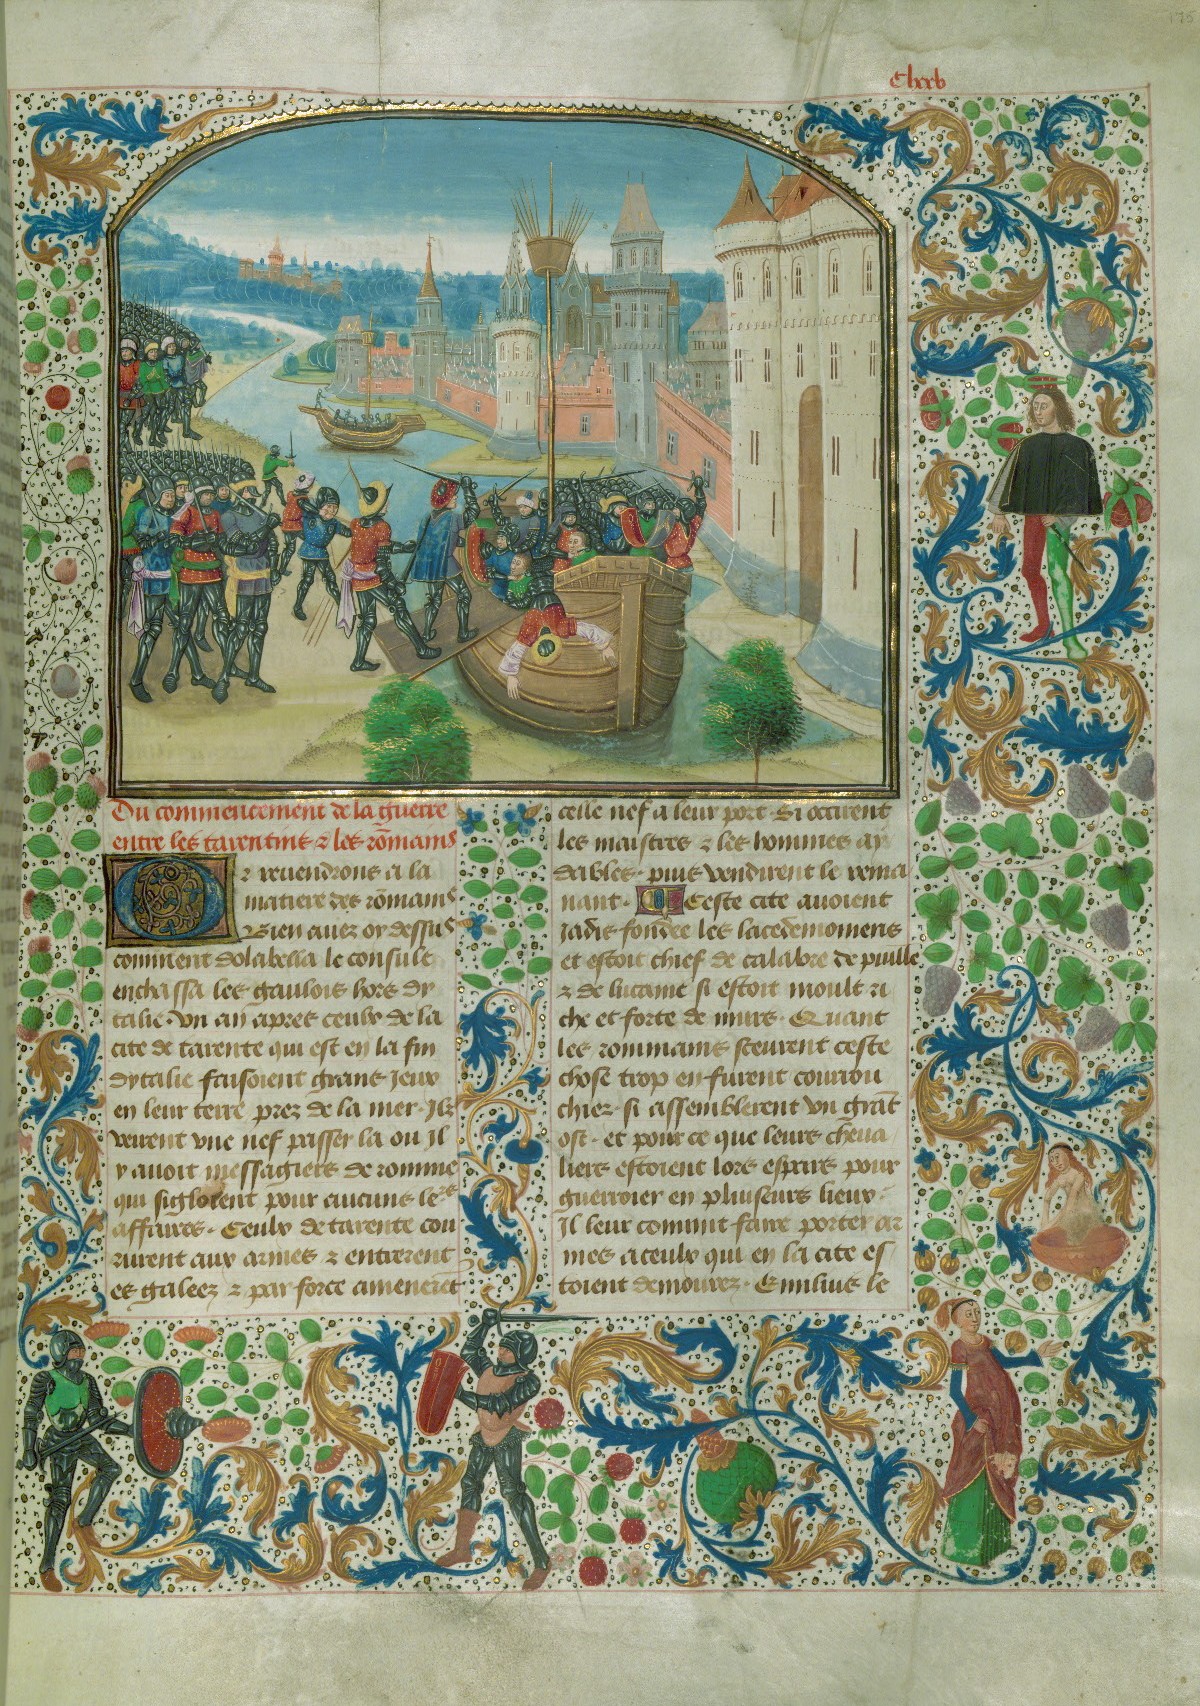 175
Clxxv
Du commencement de la guerre
entre les tarentins & les rōmains
Or reuendrons a la
matiere des rōmains
Bien auez oy dessus
comment dolabella le consule
enchassa les gaulois hors dy
talie. Vn an apres ceulx de la
cite de tarente qui est en la fin
dytalie faisoient grans Jeux
en leur terre prez de la mer. Ilz
veirent vne nef passer la ou Il
y auoit messagiers de romme
qui sigloient pour aucuns le's
affaires. Ceulx de tarente cou
rurent aux armes & entrerent
es galeez & par force amenerēt
celle nef a leur port. Si occirent
les maistres & les hommes ay
dables. puis vendirent le rema
nant. Ceste cite auoient
Jadis fondee les lacedemoniens
et estoit chief de calabre de puille
& de lucanie si estoit moult ri
che et forte de murs. Quant
les rommains sceurent ceste
chose trop en furent courou
chiez. si assemblerent vn grāt
ost. et pour ce que leurs cheua
liers estoient lors espars pour
guerroier en pluiseurs lieux.
Il leur conuint faire porter ar
mes a ceulx qui en la cite es
toient demourez. Emilius le